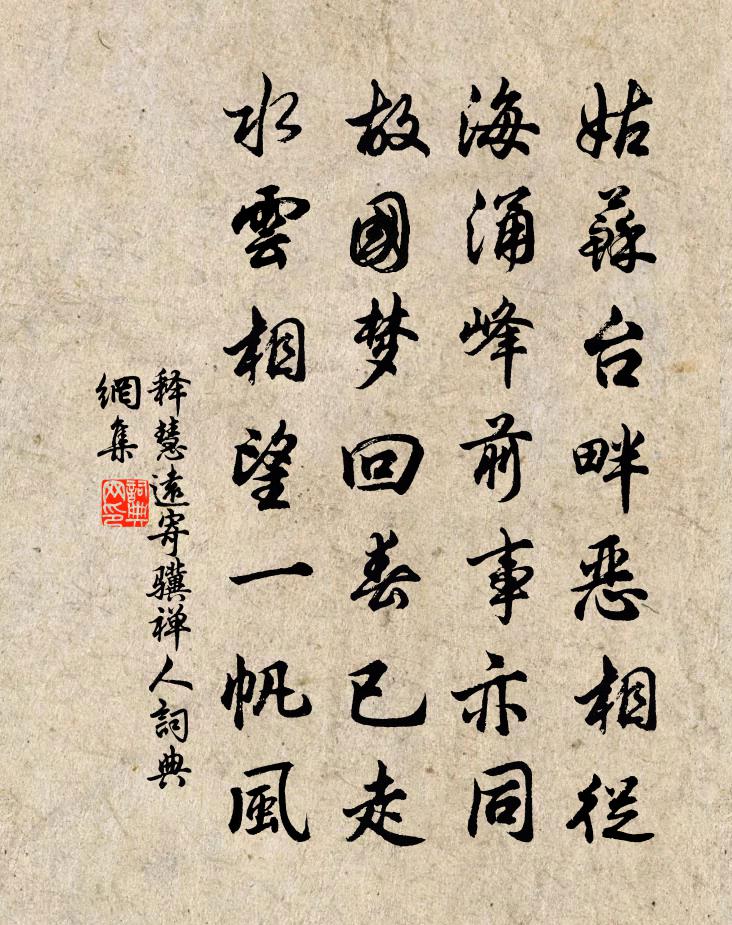 姑蘇台畔惡相從
海涌峰前事亦同
故國梦回春已走
水雲相望一帆風
释慧遠寄骥禅人詞典
網集
詞典网印